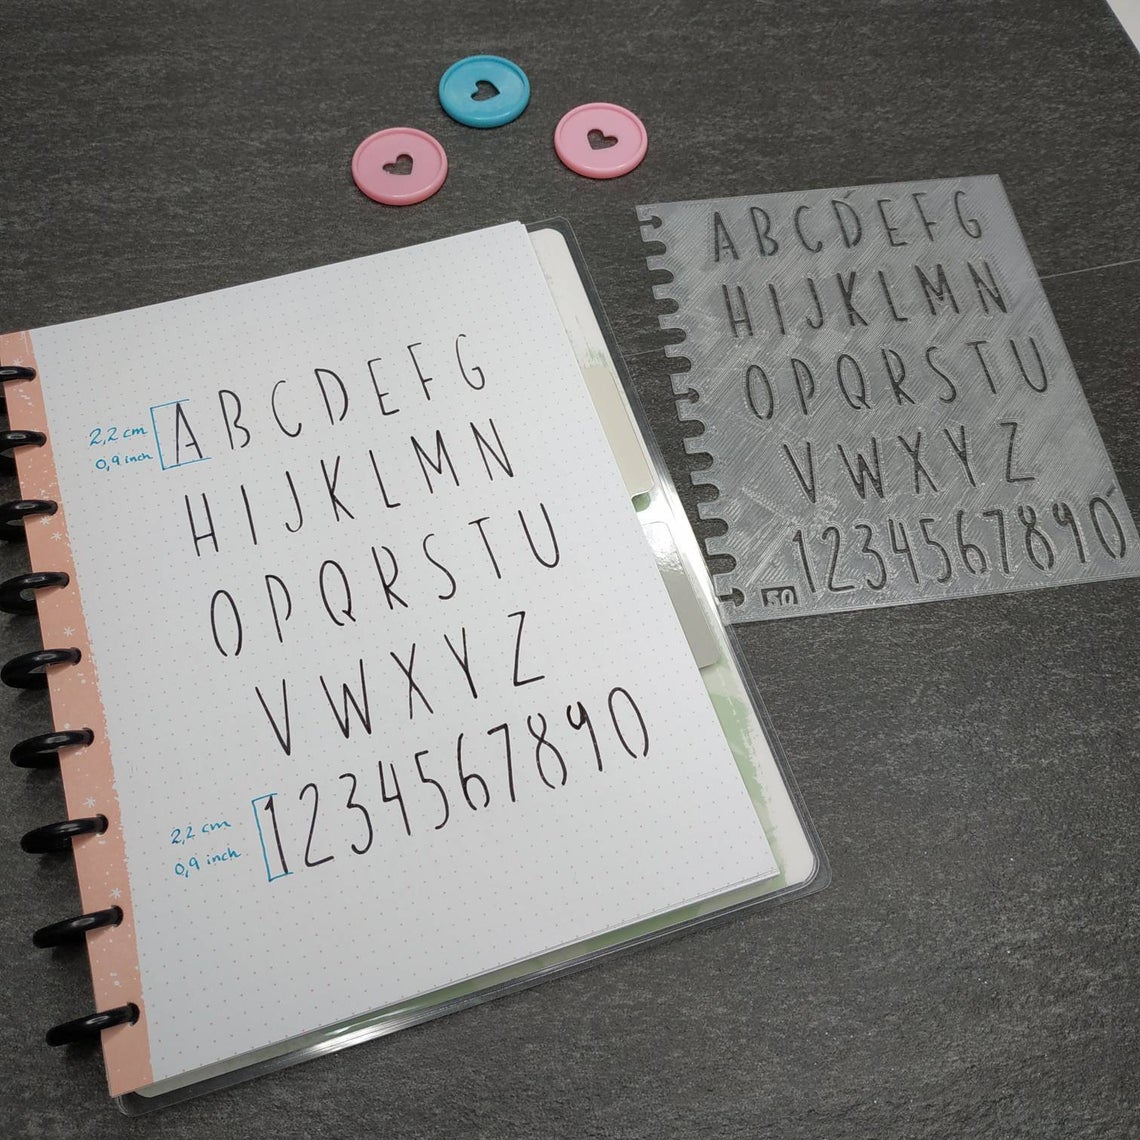 2,2 cm
0,9 inch
A B C D E F G
H I J K L M N
O P Q R S T U
V W X Y Z
2,2 cm
0,9 inch
1 2 3 4 5 6 7 8 9 0
A B C D E F G
H I J K L M N
O P Q R S T U
V W X Y Z
1 2 3 4 5 6 7 8 9 0
50